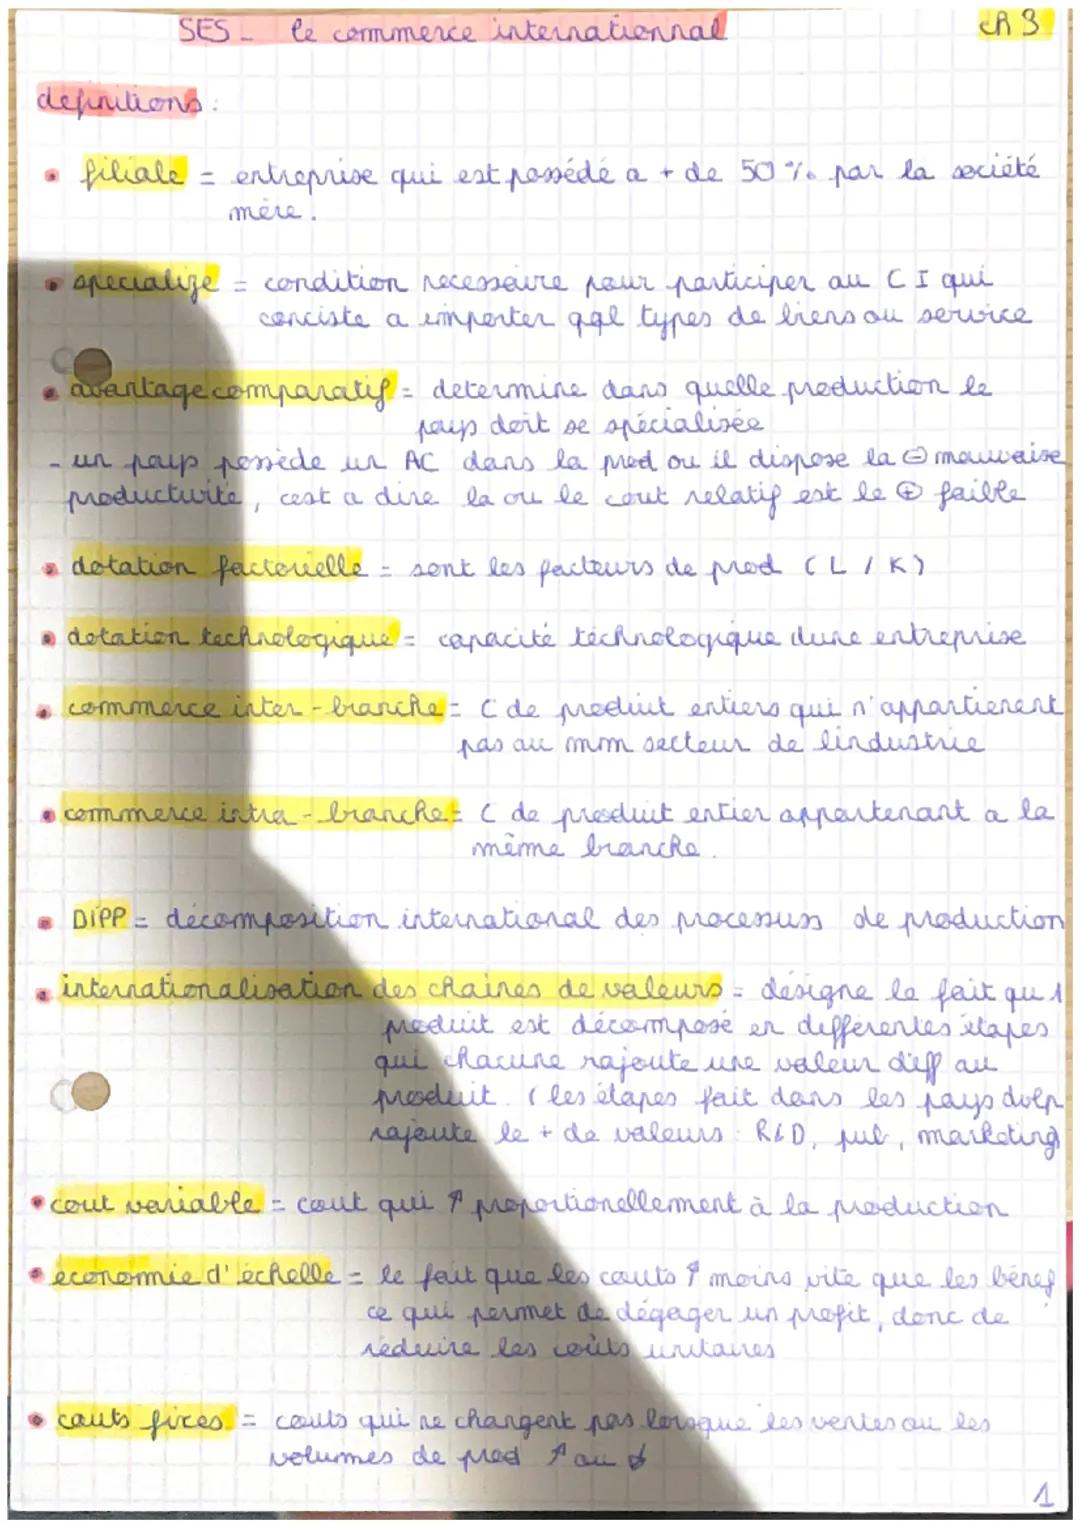 SES - le commerce internationnal ch 3
definitions :
• filiale = entreprise qui est possédé a + de 50 % par la société
mère.
• specialize = condition necessaire pour participer au C I qui
conciste a importer qql types de biens ou service
• avantage comparatif = determine dans quelle production le
pays doit se spécialisée
- un pays possède un AC dans la prod ou il dispose la ⊖ mauvaise
productivité, cest a dire la ou le cout relatif est le ⊕ faible
• dotation factorielle = sont les facteurs de prod (L / K)
• dotation technologique = capacité technologique dune entreprise
• commerce inter-branche = C de produit entiers qui n'appartienent
pas au mm secteur de lindustrie
• commerce intra-branche = C de produit entier appartenant a la
même branche.
• DIPP = décomposition international des processus de production
• internationalisation des chaines de valeurs = désigne le fait qu 1
produit est décomposé en différentes étapes
qui chacune rajoute une valeur diff au
produit. (les étapes fait dans les pays dvlp
rajoute le + de valeurs : R&D, pub, marketing)
• cout variable = cout qui ↑ proportionellement à la production
• economie d'échelle = le fait que les couts ↑ moins vite que les bénef
ce qui permet de dégager un profit, donc de
réduire les coûts unitaires
• couts fixes = couts qui ne changent pas lorsque les ventes ou les
volumes de prod ↑ ou ↓
1